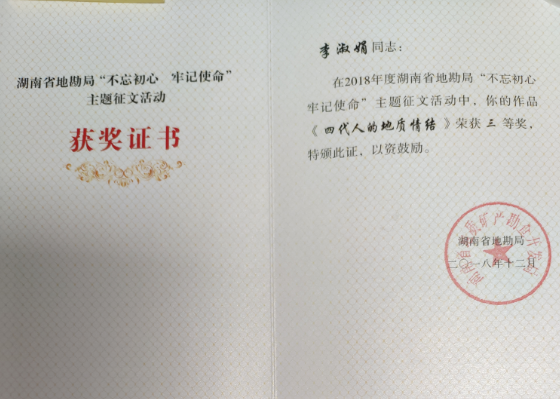 湖南省地勘局“不忘初心 牢记使命”
主题征文活动
获奖证书
李淑娟同志：
在2018年度湖南省地勘局“不忘初心
牢记使命”主题征文活动中，你的作品
《四代人的地质情结》荣获三等奖，
特颁此证，以资鼓励。
湖南省地勘局
二〇一八年十二月